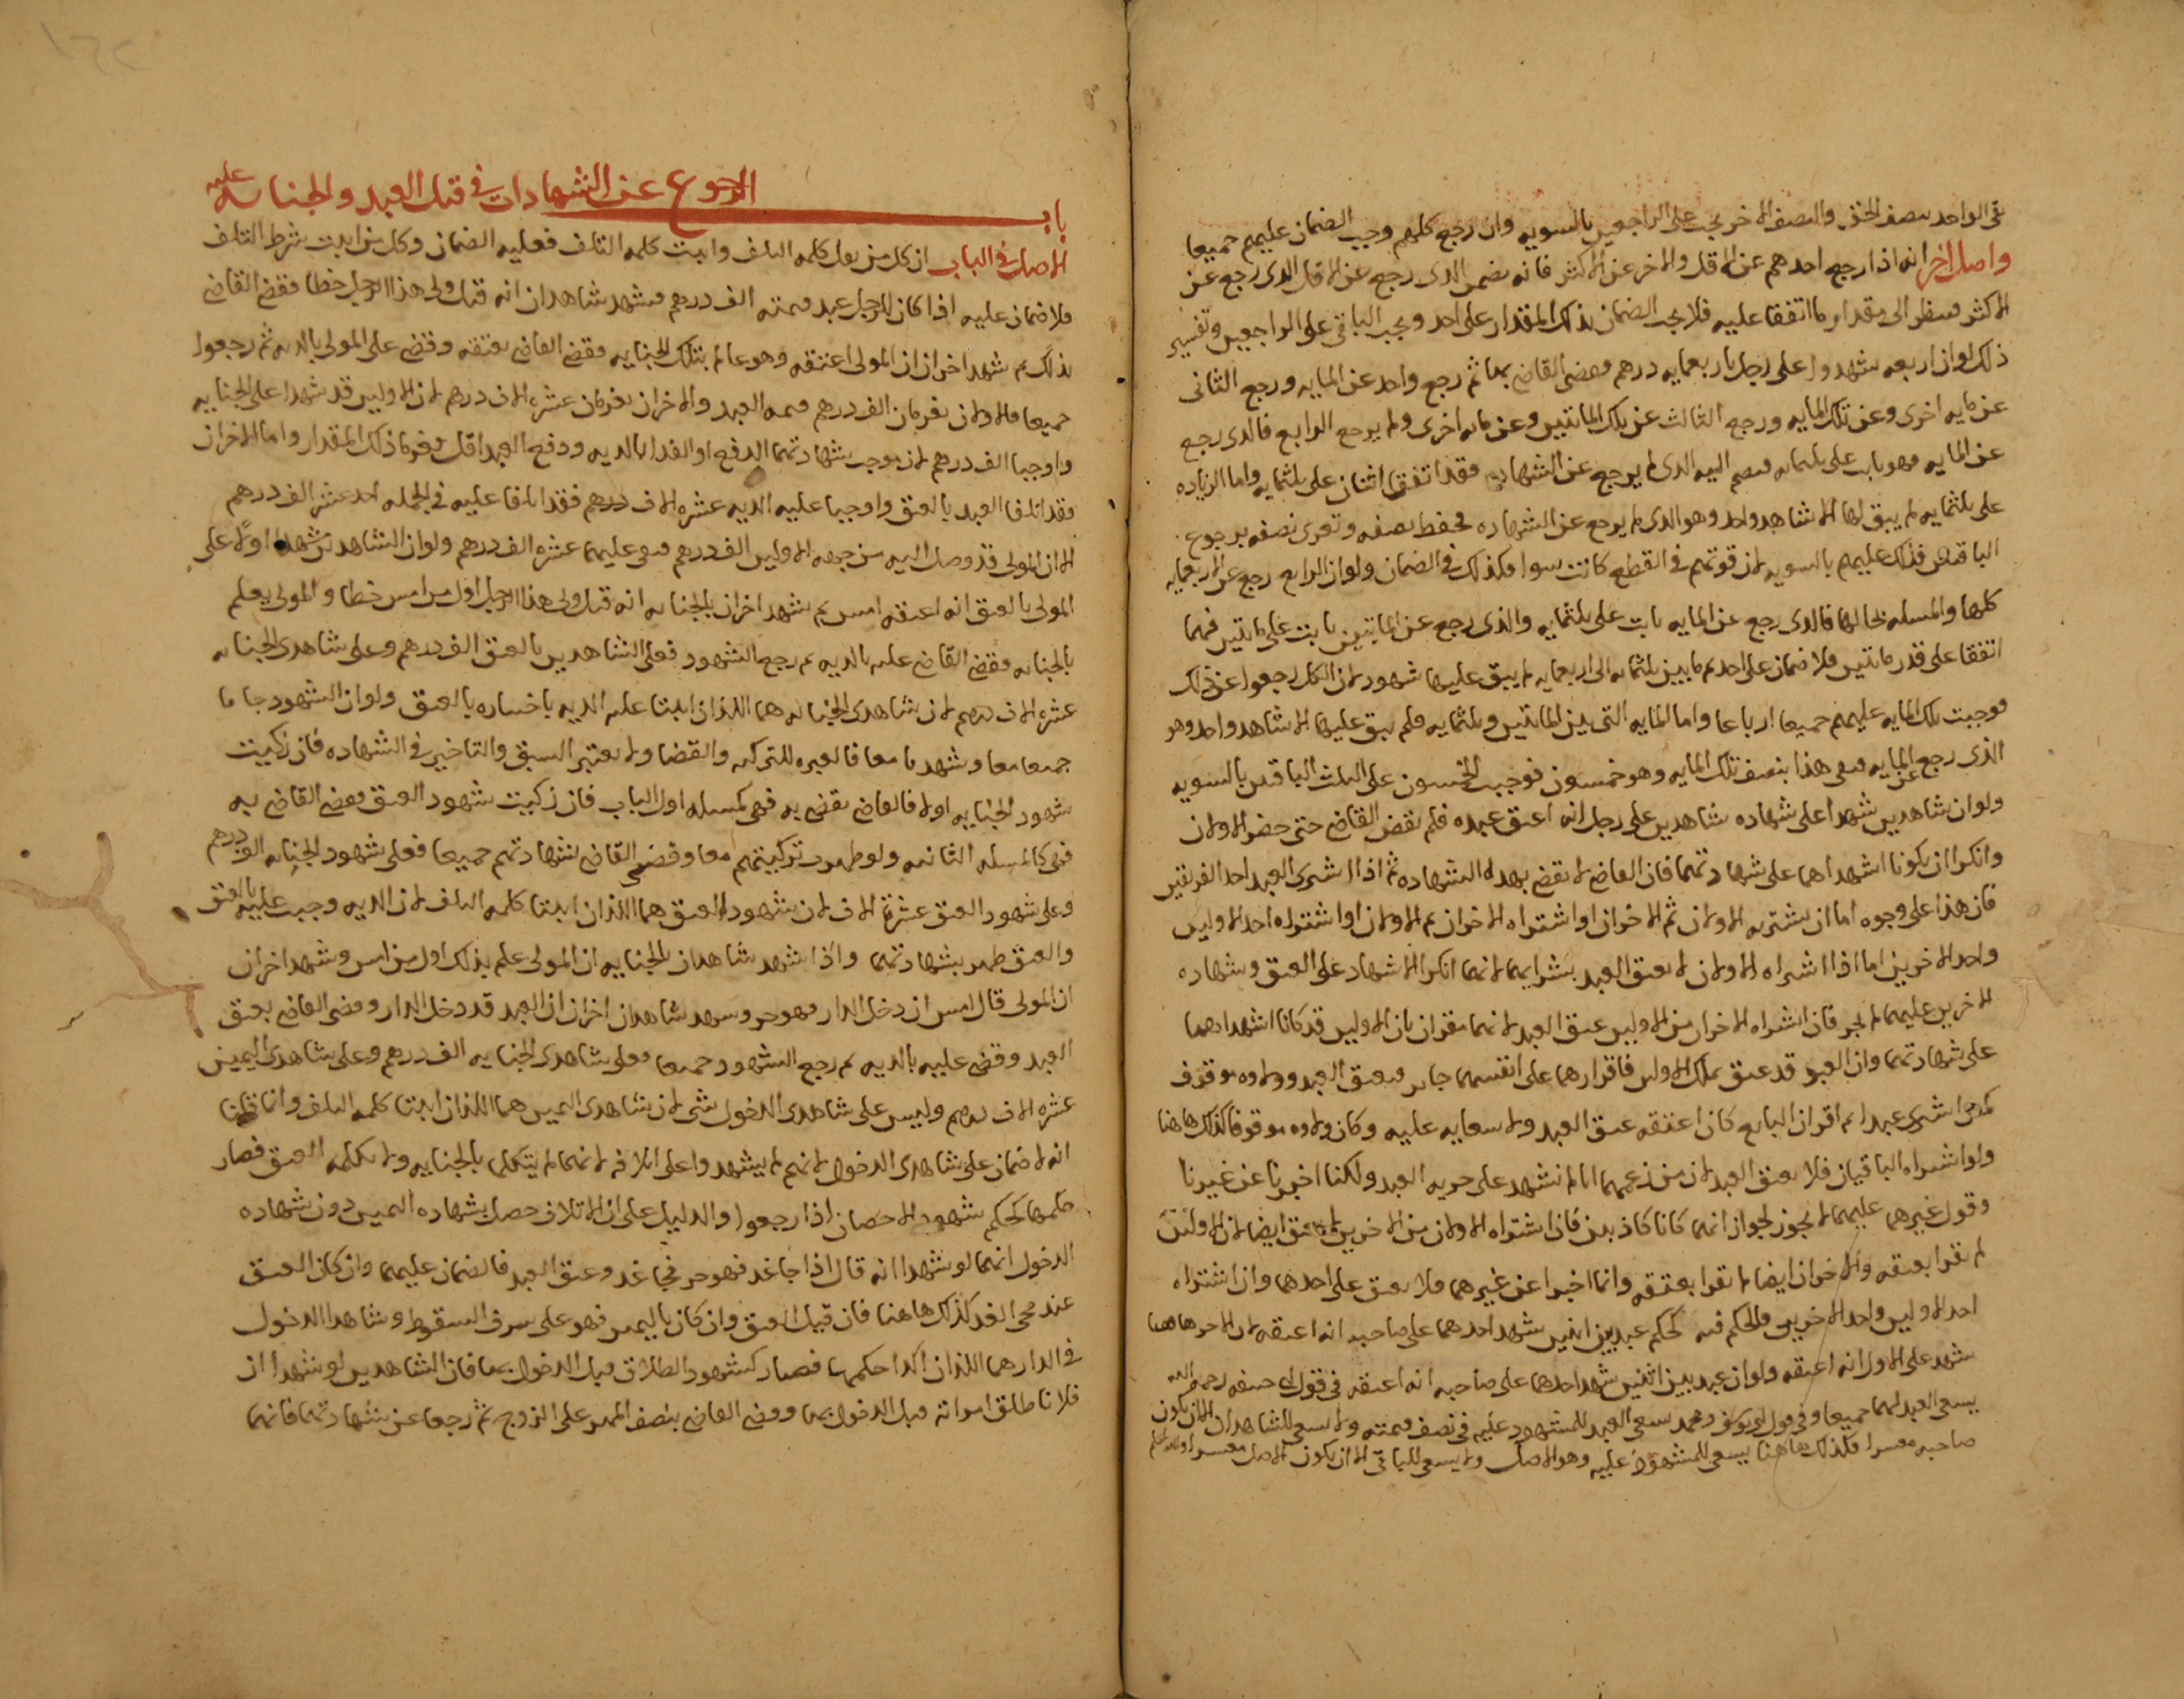 بقى الواحد بنصف الحق والنصف الاخر يجب على الراجعين بالسويه وان رجع كلهم وجب الضمان عليهم جميعا
واصل اخر انه اذا رجع احدهم عن الاقل والاخر عن الاكثر فانه يضمن الدى رجع عن الاقل الدى رجع عن
الاكثر فينظر الى مقدار ما اتفقا عليه فلا يجب الضمان بذلك المقدار على احد ويجب الباقى على الراجعين وتفسير
ذلك لو ان اربعه شهدوا على رجل باربعمايه درهم وقضى القاضى بها ثم رجع واحد عن المايه ورجع الثانى
عن مايه اخرى وعن تلك المايه ورجع الثالث عن تلك الماتتين وعن مايه اخرى ولم يرجع الرابع فالدى رجع
عن المايه فهو ثابت على ثلثمايه فيضم اليه الدى لم يرجع عن الشهاده فقد اتفق اثنان على ثلثمايه واما الزياده
على ثلثمايه لم يبق لها الا شاهد واحد وهو الدى لم يرجع عن الشهاده فحفظ نصفه وتعرى نصفه برجوع
الباقين فذلك عليهم بالسويه لان قوتهم فى القطع كانت سوا فكذلك فى الضمان ولو ان الرابع رجع عن الاربعمايه
كلها والمسله بحالها فالدى رجع عن المايه ثابت على ثلثمايه والذى رجع عن الماتتين ثابت على ماتتين فهما
اتفقا على قدر ماتتين فلا ضمان على احد ثم ما بين ثلثمايه الى اربعمايه لم يبق عليها شهود لان الكل رجعوا عن ذلك
فوجبت تلك المايه عليهم جميعا ارباعا واما المايه التى بين الماتتين وثلثمايه فلم يبق عليها الا شاهد واحد وهو
الذى رجع عن المايه فبقى هذا بنصف تلك المايه وهو خمسون فوجب الخمسون على الثلث الباقين بالسويه
ولو ان شاهدين شهدا على شهاده شاهدين على رجل انه اعتق عبده فلم يقض القاضى حتى حضر الاولان
وانكرا ان يكونا اشهداهما على شهادتهما فان القاضى لا يقضى بهده الشهاده ثم اذا اشترى العبد احد الفريقين
فان هذا على وجوه اما ان يشتريه الاولان ثم الاخران او اشتراه الاخران ثم الاولان او اشتراه احد الاولين
واحد الاخرين اما اذا اشتراه الاولان لا يعتق العبد بشرايهما لانهما انكرا الاشهاد على العتق وشهاده
الاخرين عليهما لا تجز فان اشتراه الاخران من الاولين عتق العبد لانهما مقران بان الاولين قد كانا اشهداهما
على شهادتهما وان العبد قد عتق بملك الاولين فاقرارهما على انفسهما جايز فيعتق العبد وولاوه موقوف
كمن اشترى عبدا ثم اقر ان البايع كان اعتقه عتق العبد ولا سعايه عليه وكان ولاوه موقوفا كذلك هاهنا
ولو اشتراه الباقيان فلا يعتق العبد لان من زعمهما انا لم نشهد على حريه العبد ولكنا اخبرنا عن غيرنا
وقول غيرهما عليهما لا يجوز لجواز انهما كانا كاذبين فان اشتراه الاولان من الاخرين لا يعتق ايضا لان الاولين
لم يقرا بعتقه والاخران ايضا لم يقرا بعتقه وانما اخبرا عن غيرهما فلا يعتق على احدهما وان اشتراه
احد الاولين واحد الاخرين فالحكم فيه كحكم عبد بين اثنين شهد احدهما على صاحبه انه اعتقه لان الاخر هاهنا
شهد على الاول انه اعتقه ولو ان عبد بين اثنين شهد احدهما على صاحبه انه اعتقه فى قول ابى حنيفه رحمه الله
يسعى العبد لهما جميعا وفى قول ابى يوسف ومحمد يسعى العبد للمشهود عليه فى نصف قيمته ولا يسعى للشاهد الا ان يكون
صاحبه معسرا فكذلك هاهنا يسعى للمشهود عليه وهو الاصل ولا يسعى للباقى الا ان يكون الاصل معسرا والله اعلم
باب الرجوع عن الشهادات فى قتل العبد والجنايه عليه
الاصل فى الباب ان كل من نقل كلمه التلف واثبت كلمه التلف فعليه الضمان وكل من اثبت شرط التلف
فلا ضمان عليه اذا كان للرجل عبد قيمته الف درهم فشهد شاهدان انه قتل ولى هذا الرجل خطا فقضى القاضى
بذلك ثم شهد اخران ان المولى اعتقه وهو عالم بتلك الجنايه فقضى القاضى بعتقه وقضى على المولى بالديه ثم رجعوا
جميعا فالاولان يغرمان الف درهم قيمه العبد والاخران يغرمان عشره الاف درهم لان الاولين قد شهدا على الجنايه
واوجبا الف درهم لان موجب شهادتهما الدفع او الفدا بالديه ودفع العبد اقل فغرما ذلك المقدار واما الاخران
فقد اتلفا العبد بالعتق واوجبا عليه الديه عشره الاف درهم فقد اتلفا عليه فى الجمله احد عشر الف درهم
الا ان المولى قد وصل اليه من جهه الاولين الف درهم فبقى عليهما عشره الف درهم ولو ان الشاهدين شهدا اولا على
المولى بالعتق انه اعتقه امس ثم شهد اخران بالجنايه انه قتل ولى هذا الرجل اول من امس خطا والمولى يعلم
بالجنايه فقضى القاضى عليه بالديه ثم رجع الشهود فعلى الشاهدين بالعتق الف درهم وعلى شاهدى الجنايه
عشره الاف درهم لان شاهدى الجنايه هما اللذان اثبتا عليه الديه باختياره بالعتق ولو ان الشهود جاوا
جميعا معا وشهدوا معا فالعبره للتزكيه والقضا ولا يعتبر السبق والتاخير فى الشهاده فان زكيت
شهود الجنايه اولا فالقاضى يقضى به فهى كمسله اول الباب فان زكيت شهود العتق فقضى القاضى به
فهى كالمسله الثانيه ولو ظهرت تزكيتهم معا وقضى القاضى بشهادتهم جميعا فعلى شهود الجنايه الف درهم
وعلى شهود العتق عشرة الاف لان شهود العتق هما اللذان اثبتا كلمه التلف لان الديه وجبت عليه بالعتق
والعتق ظهر بشهادتهما واذا شهد شاهدان بالجنايه ان المولى علم بذلك اول من امس وشهد اخران
ان المولى قال امس ان دخل الدار فهو حر وشهد شاهدان اخران ان العبد قد دخل الدار وقضى القاضى بعتق
العبد وقضى عليه بالديه ثم رجع الشهود جميعا فعلى شاهدى الجنايه الف درهم وعلى شاهدى اليمين
عشره الاف درهم وليس على شاهدى الدخول شى لان شاهدى اليمين هما اللذان اثبتا كلمه التلف وانما قلنا
انه لا ضمان على شاهدى الدخول لانهم لم يشهدوا على اتلافه لانهما لم يتكلما بالجنايه ولا بكلمه العتق فصار
حكمها كحكم شهود الاحصان اذا رجعوا والدليل على ان الاتلاف حصل بشهاده اليمين دون شهاده
الدخول انهما لو شهدا انه قال اذا جا غد فهو حر فجا غد وعتق العبد فالضمان عليهما وان كان العتق
عند مجى الغد كذلك هاهنا فان قيل العتق وان كان باليمين فهو على شرف السقوط وشاهدا الدخول
فى الدار هما اللذان اكدا حكمها فصار كشهود الطلاق قبل الدخول بها فان الشاهدين لو شهدا ان
فلانا طلق امراته قبل الدخول بها وقضى القاضى بنصف المهر على الزوج ثم رجعا عن شهادتهما فانهما